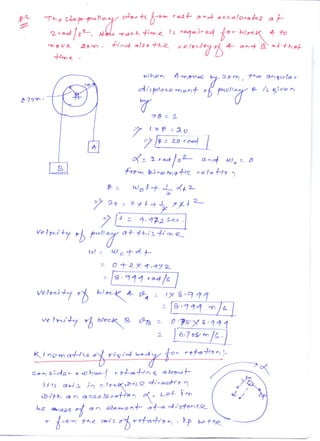 Q.2 The step-pulley starts from rest and accelerates at
2 rad/s². How much time is required for block A to
move 20m. find also the velocity of A and B at that
time.
when A move by 20m, the angular
displacement of pulley θ is given
by
0.75m
rθ = S
A
B
1×θ = 20
θ = 20 rad
α = 2 rad/s² and ω₀ = 0
from kinematic relation
θ = ω₀t + 1/2 αt²
20 = 0×t + 1/2 × 2 t²
t = 4.472 sec.
velocity of pulley at this time
ω = ω₀ + αt
= 0 + 2 × 4.472
= 8.944 rad/s
velocity of block A ϑA = 1×8.944
= 8.944 m/s
velocity of block B ϑB = 0.75×8.944
= 6.708 m/s.
Kinematics of rigid body for rotation:
consider a wheel rotating about
its axis in clockwise direction
with an acceleration α. Let δm
be mass of an element at a distance
r from the axis of rotation. δp be the